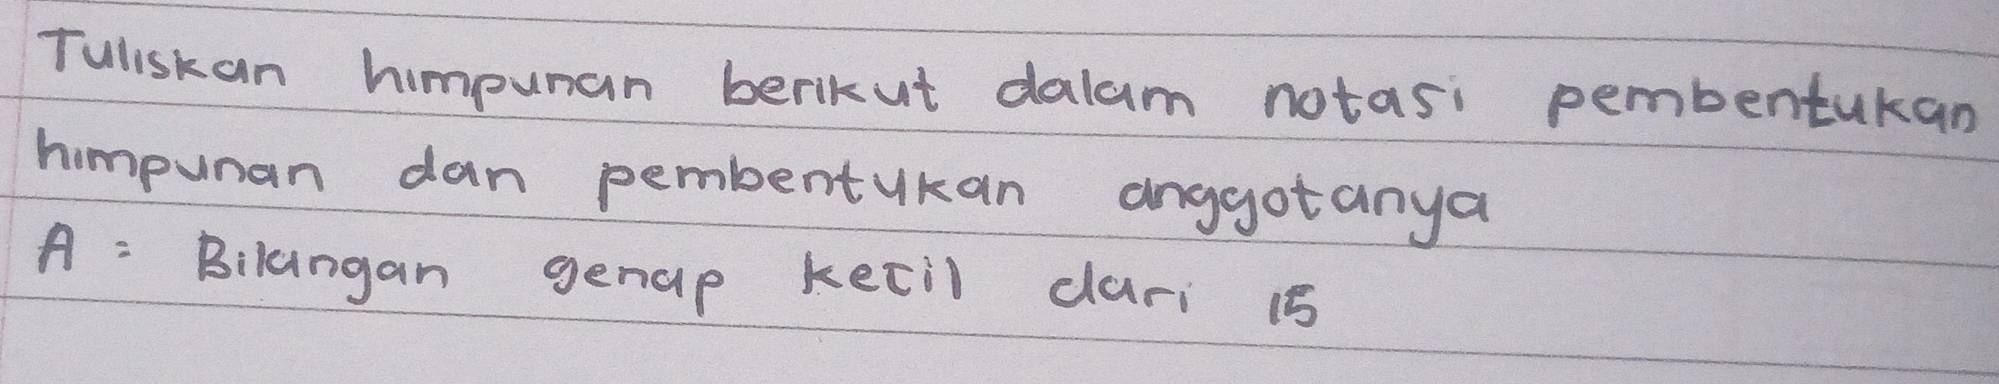 Tuliskan himpunan berikut dalam notasi pembentukan
himpunan dan pembentukan anggotanya
A = Bilangan genap kecil dari 15